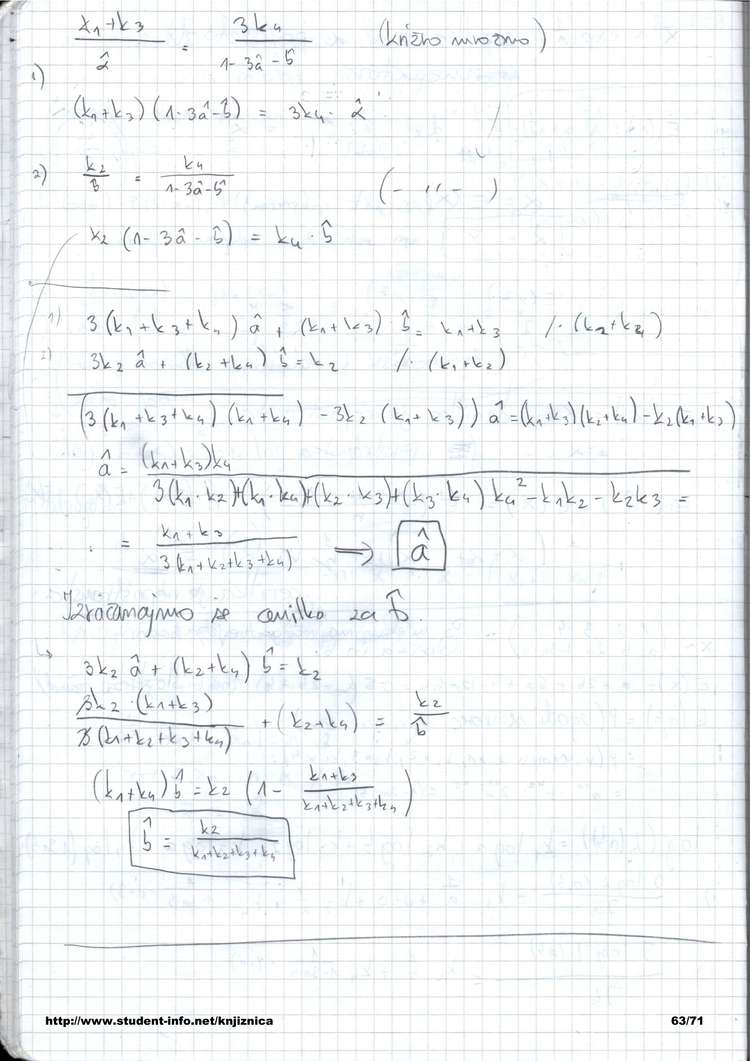 (k₁+k₃)/â = 3k₄/(1-3â-b̂) (križno množmo)
1)
(k₁+k₃)(1-3â-b̂) = 3k₄·â
2) k₂/b̂ = k₄/(1-3â-b̂) (- 〃 -)
k₂(1-3â-b̂) = k₄·b̂
1) 3(k₁+k₃+k₄)â + (k₁+k₃)b̂ = k₁+k₃ /·(k₂+k₄)
2) 3k₂â + (k₂+k₄)b̂ = k₂ /·(k₁+k₂)
(3(k₁+k₃+k₄)(k₁+k₄) - 3k₂(k₁+k₃))â = (k₁+k₃)(k₂+k₄) - k₂(k₁+k₃)
â = (k₁+k₃)k₄ / 3(k₁·k₂)+(k₁·k₄)+(k₂·k₃)+(k₃·k₄) k₄² - k₁k₂ - k₂k₃ =
= (k₁+k₃)/(3(k₁+k₂+k₃+k₄)) ⟹ â
Izračunajmo še cenilko za b̂.
↳ 3k₂â + (k₂+k₄)b̂ = k₂
3k₂·(k₁+k₃)/(3(k₁+k₂+k₃+k₄)) + (k₂+k₄) = k₂/b̂
(k₁+k₄)b̂ = k₂(1 - (k₁+k₃)/(k₁+k₂+k₃+k₄))
b̂ = k₂/(k₁+k₂+k₃+k₄)
http://www.student-info.net/knjiznica 63/71